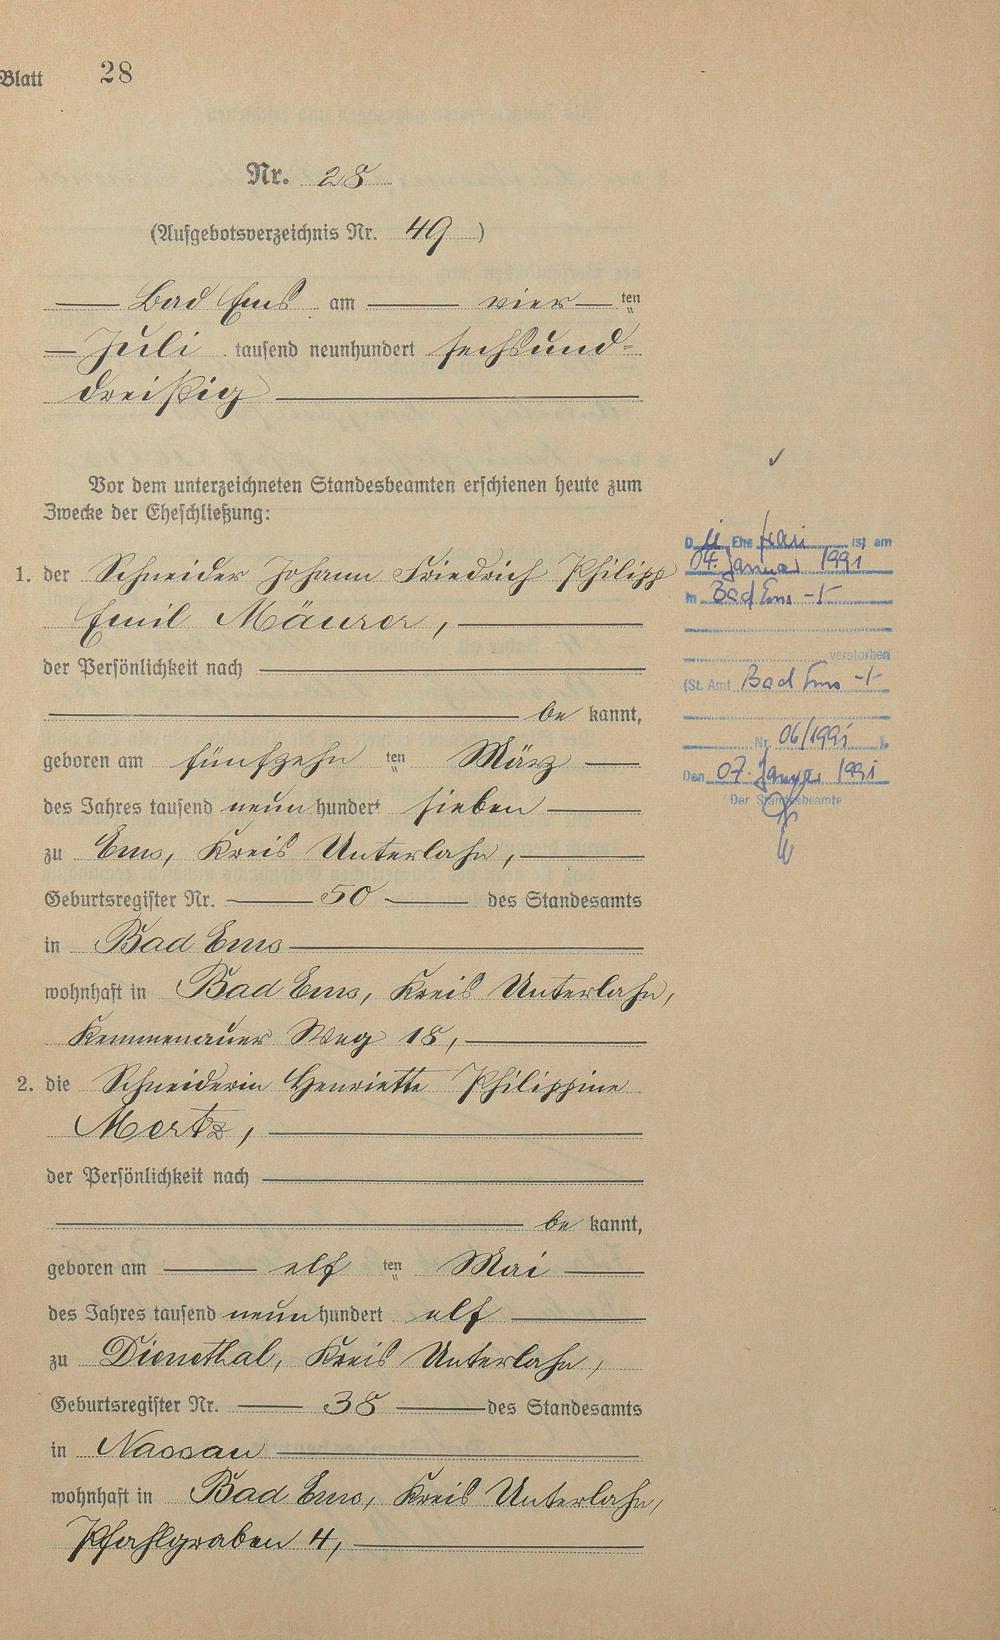 Blatt 28
Nr. 28
(Aufgebotsverzeichnis Nr. 49 )
Bad Ems am vier ten
Juli tausend neunhundert sechsund-
dreißig
Vor dem unterzeichneten Standesbeamten erschienen heute zum
Zwecke der Eheschließung:
1. der Schneider Johann Friedrich Philipp
Emil Mäurer,
der Persönlichkeit nach
be kannt,
geboren am fünfzehn ten März
des Jahres tausend neun hundert sieben
zu Ems, Kreis Unterlahn,
Geburtsregister Nr. 50 des Standesamts
in Bad Ems
wohnhaft in Bad Ems, Kreis Unterlahn,
Kemmenauer Weg 18,
2. die Schneiderin Henriette Philippine
Mertz,
der Persönlichkeit nach
be kannt,
geboren am elf ten Mai
des Jahres tausend neun hundert elf
zu Dienethal, Kreis Unterlahn,
Geburtsregister Nr. 38 des Standesamts
in Nassau
wohnhaft in Bad Ems, Kreis Unterlahn,
Pfahlgraben 4,
Die Ehefrau ist am
04. Januar 1991
in Bad Ems
verstorben
(St. Amt Bad Ems
Nr. 06/1991 ).
Den 07. Januar 1991
Der Standesbeamte